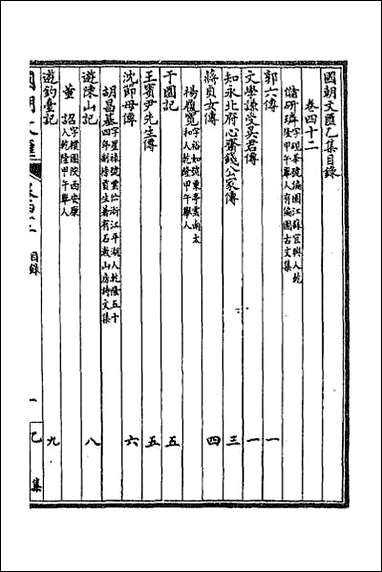 國朝文匯乙集目錄
卷四十二
儲研璘字硯峯號編園江蘇宜興人乾隆甲午舉人有編園古文集
郭六傳 一
文學謙受吳君傳 一
知永北府心齋錢公家傳 三
蔣貞女傳 四
楊履寬字裕如號東亭雲南太和人乾隆甲午舉人
于園記 五
王賓尹先生傳 五
沈節母傳 六
胡昌基字星祿號雲佇浙江平湖人乾隆五十四年副榜貢生著有石瀨山房詩文集
遊陳山記 八
董詔字樸園陝西安康人乾隆甲午舉人
遊釣臺記 九
國朝文匯
卷四十二
目錄
一
乙集